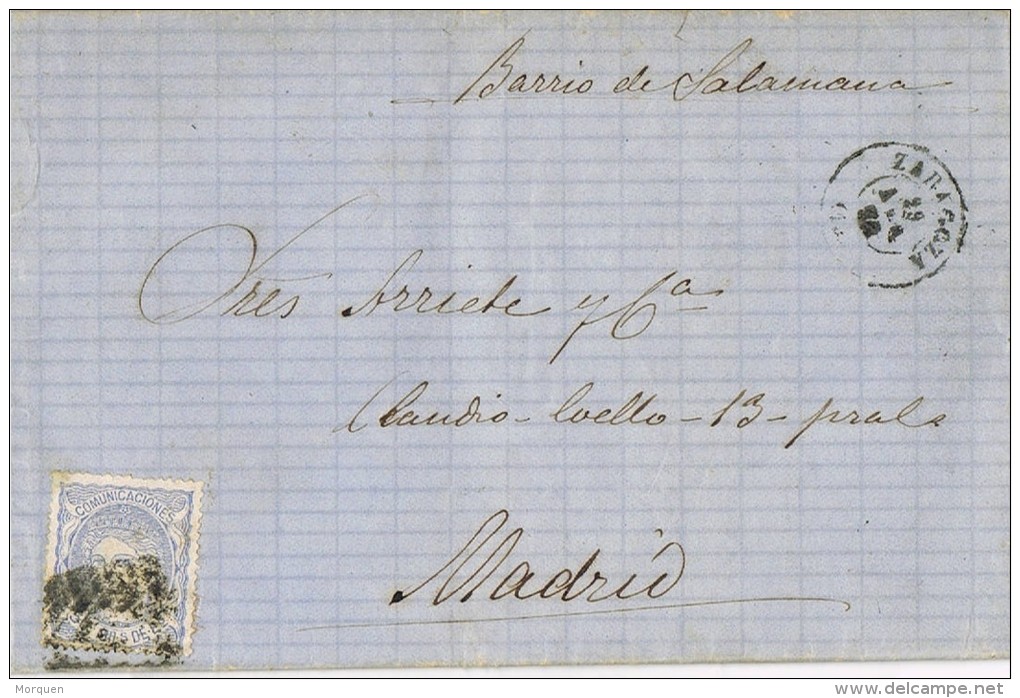 Barrio de Salamana
ZARAGOZA
29
Sres Arriete y Cª
Claudio-Coello-13-pral
COMUNICACIONES
MILS DE
Madrid
Morquen
www.delcampe.net